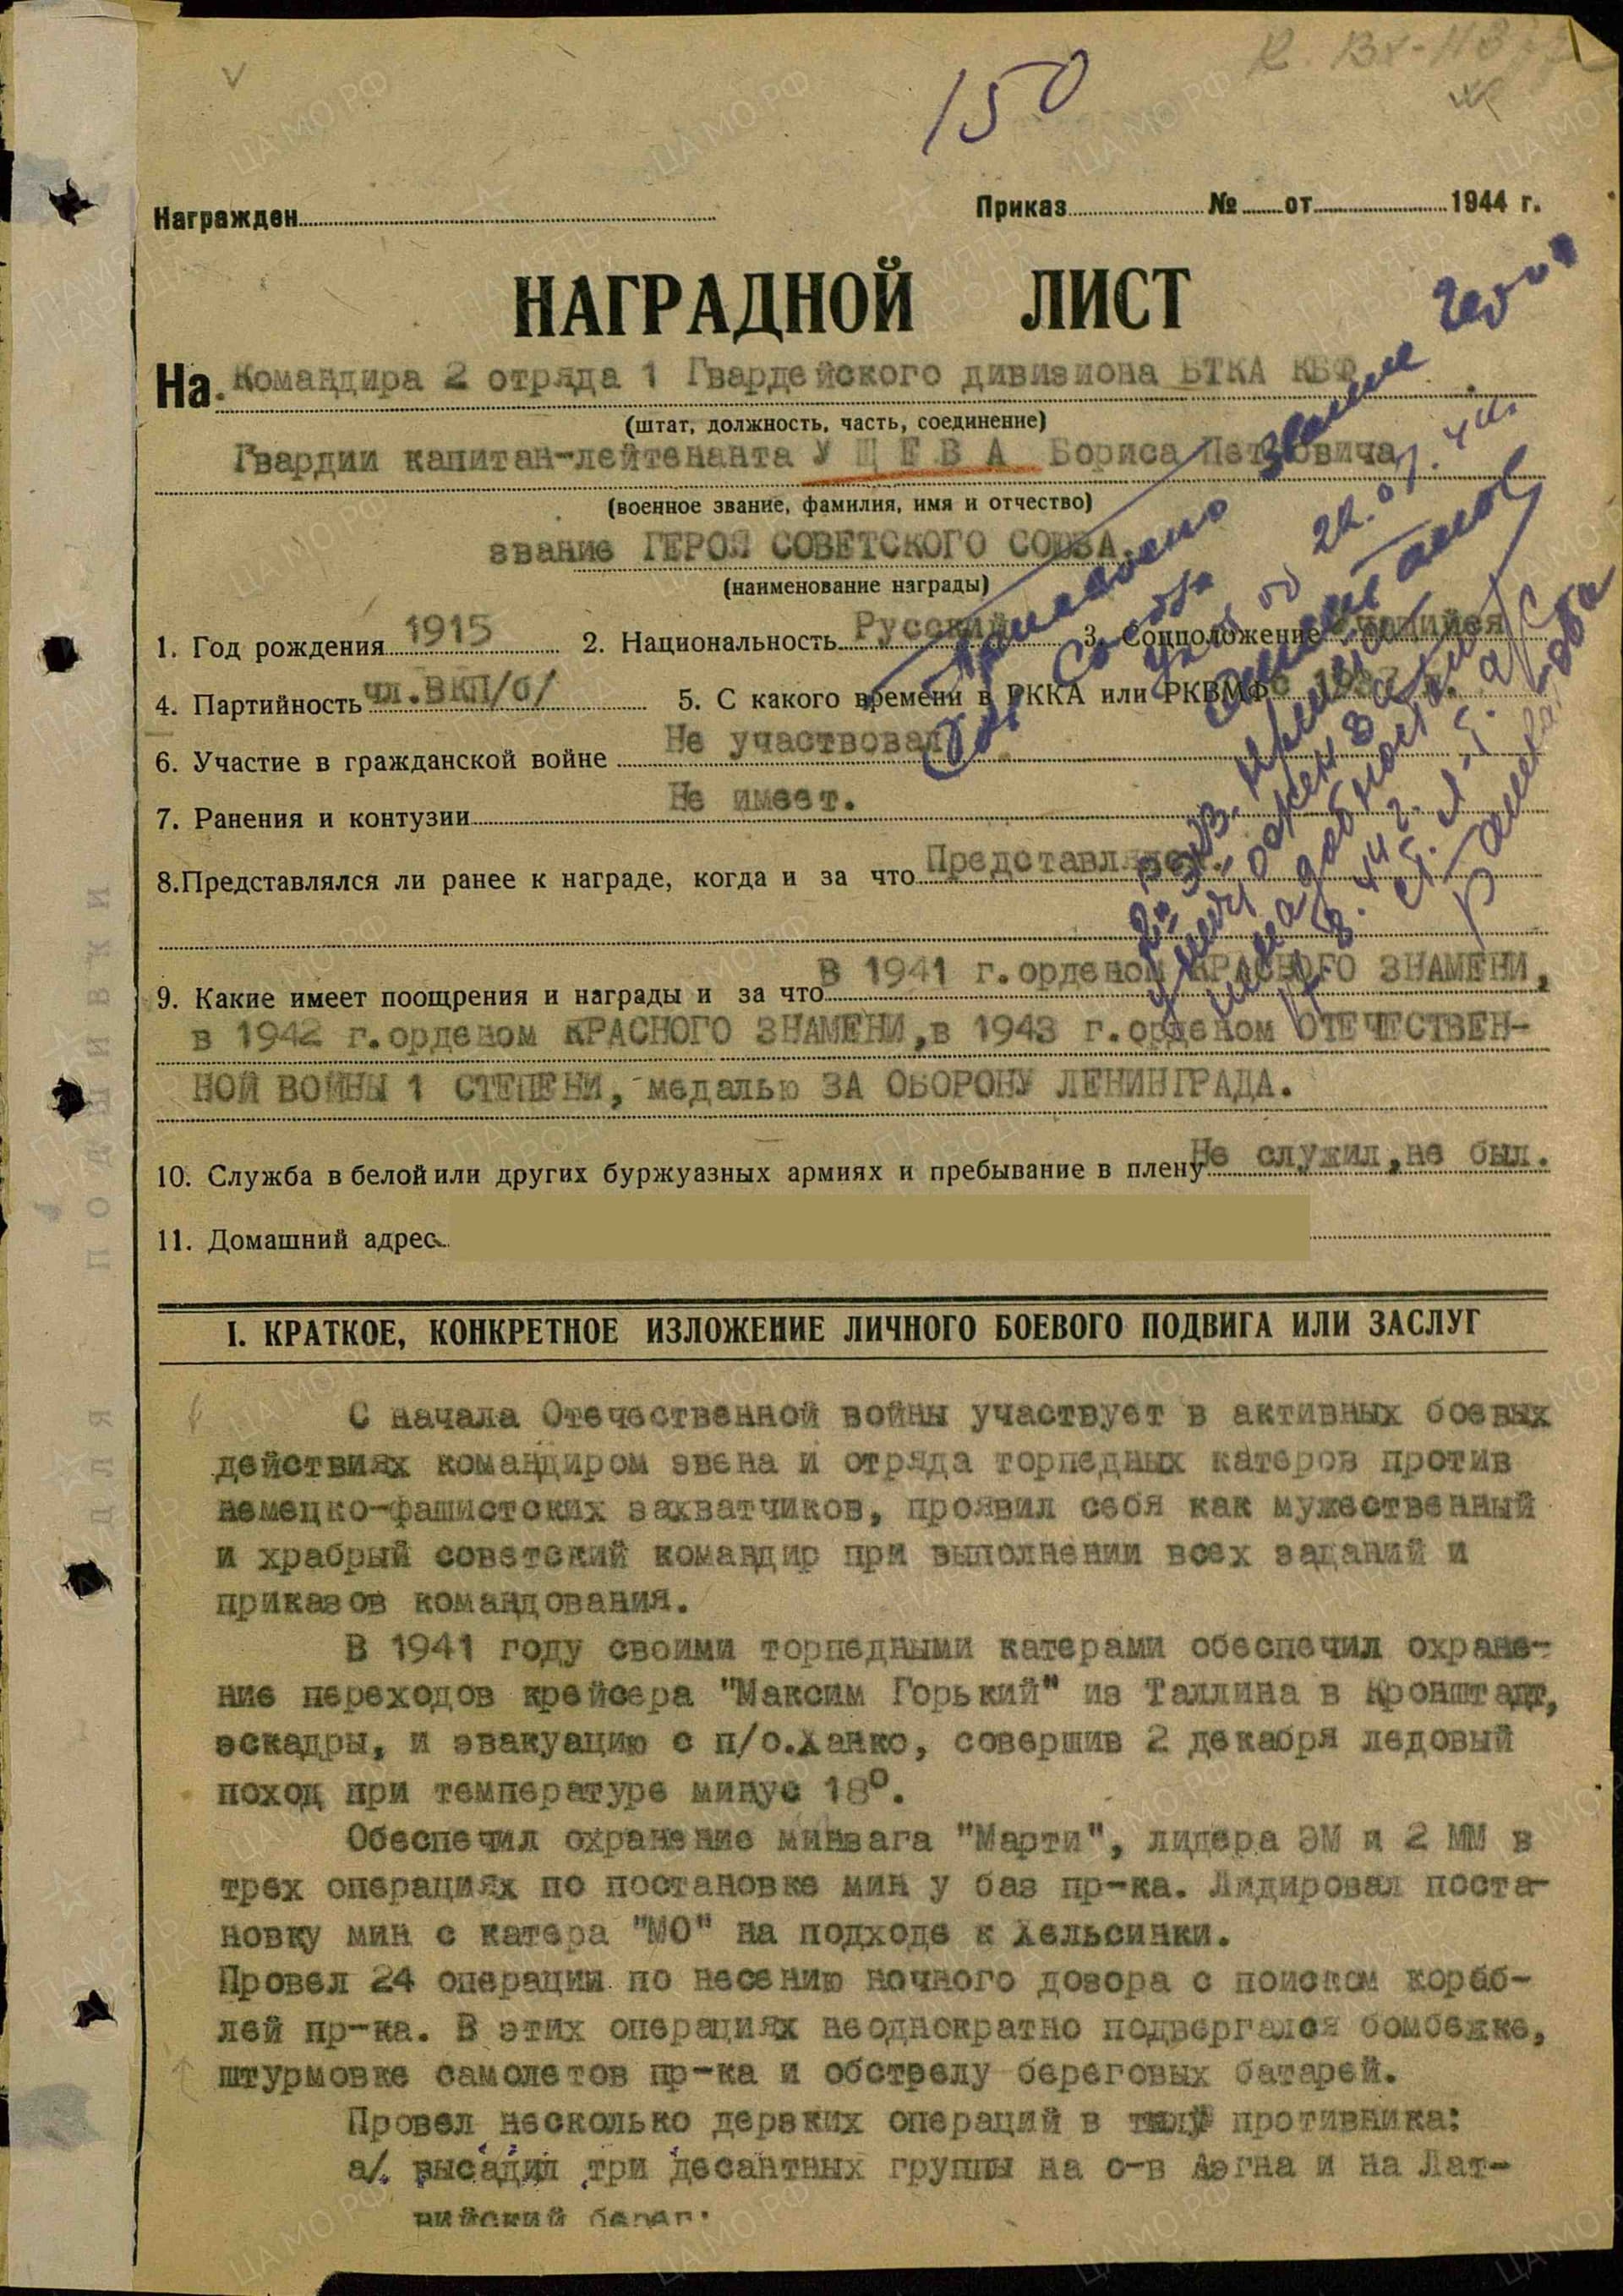 150
Награжден
Приказ № от 1944 г.
НАГРАДНОЙ ЛИСТ
На Командира 2 отряда 1 Гвардейского дивизиона БТКА КБФ
(штат, должность, часть, соединение)
Гвардии капитан-лейтенанта УЩЕВА Бориса Петровича
(военное звание, фамилия, имя и отчество)
звание ГЕРОЯ СОВЕТСКОГО СОЮЗА.
(наименование награды)
Присвоено звание Героя
Сов. Союза
Указ от 22.07.44г.
1. Год рождения 1915 2. Национальность Русский 3. Соцположение учащийся
4. Партийность чл.ВКП/б/ 5. С какого времени в РККА или РКВМФ с 1937 г.
6. Участие в гражданской войне Не участвовал
7. Ранения и контузии Не имеет.
8.Представлялся ли ранее к награде, когда и за что Представлялся.
9. Какие имеет поощрения и награды и за что В 1941 г.орденом КРАСНОГО ЗНАМЕНИ,
в 1942 г.орденом КРАСНОГО ЗНАМЕНИ,в 1943 г.орденом ОТЕЧЕСТВЕН-
НОЙ ВОЙНЫ 1 СТЕПЕНИ, медалью ЗА ОБОРОНУ ЛЕНИНГРАДА.
10. Служба в белой или других буржуазных армиях и пребывание в плену Не служил,не был.
11. Домашний адрес
I. КРАТКОЕ, КОНКРЕТНОЕ ИЗЛОЖЕНИЕ ЛИЧНОГО БОЕВОГО ПОДВИГА ИЛИ ЗАСЛУГ
С начала Отечественной войны участвует в активных боевых
действиях командиром звена и отряда торпедных катеров против
немецко-фашистских захватчиков, проявил себя как мужественный
и храбрый советский командир при выполнении всех заданий и
приказов командования.
В 1941 году своими торпедными катерами обеспечил охране-
ние переходов крейсера "Максим Горький" из Таллина в Кронштадт,
эскадры, и эвакуацию с п/о.Ханко, совершив 2 декабря ледовый
поход при температуре минус 18°.
Обеспечил охранение минзага "Марти", лидера ЭМ и 2 ММ в
трех операциях по постановке мин у баз пр-ка. Лидировал поста-
новку мин с катера "МО" на подходе к Хельсинки.
Провел 24 операции по несению ночного дозора с поиском кораб-
лей пр-ка. В этих операциях неоднократно подвергался бомбежке,
штурмовке самолетов пр-ка и обстрелу береговых батарей.
Провел несколько дерзких операций в тылу противника:
а/. высадил три десантных группы на о-в Аэгна и на Лат-
вийский берег;
ДЛЯ ПОДШИВКИ
ЦА МО РФ
ПАМЯТЬ НАРОДА